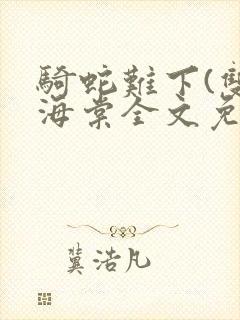 騎蛇難下(雙
海棠全文免
冀浩凡